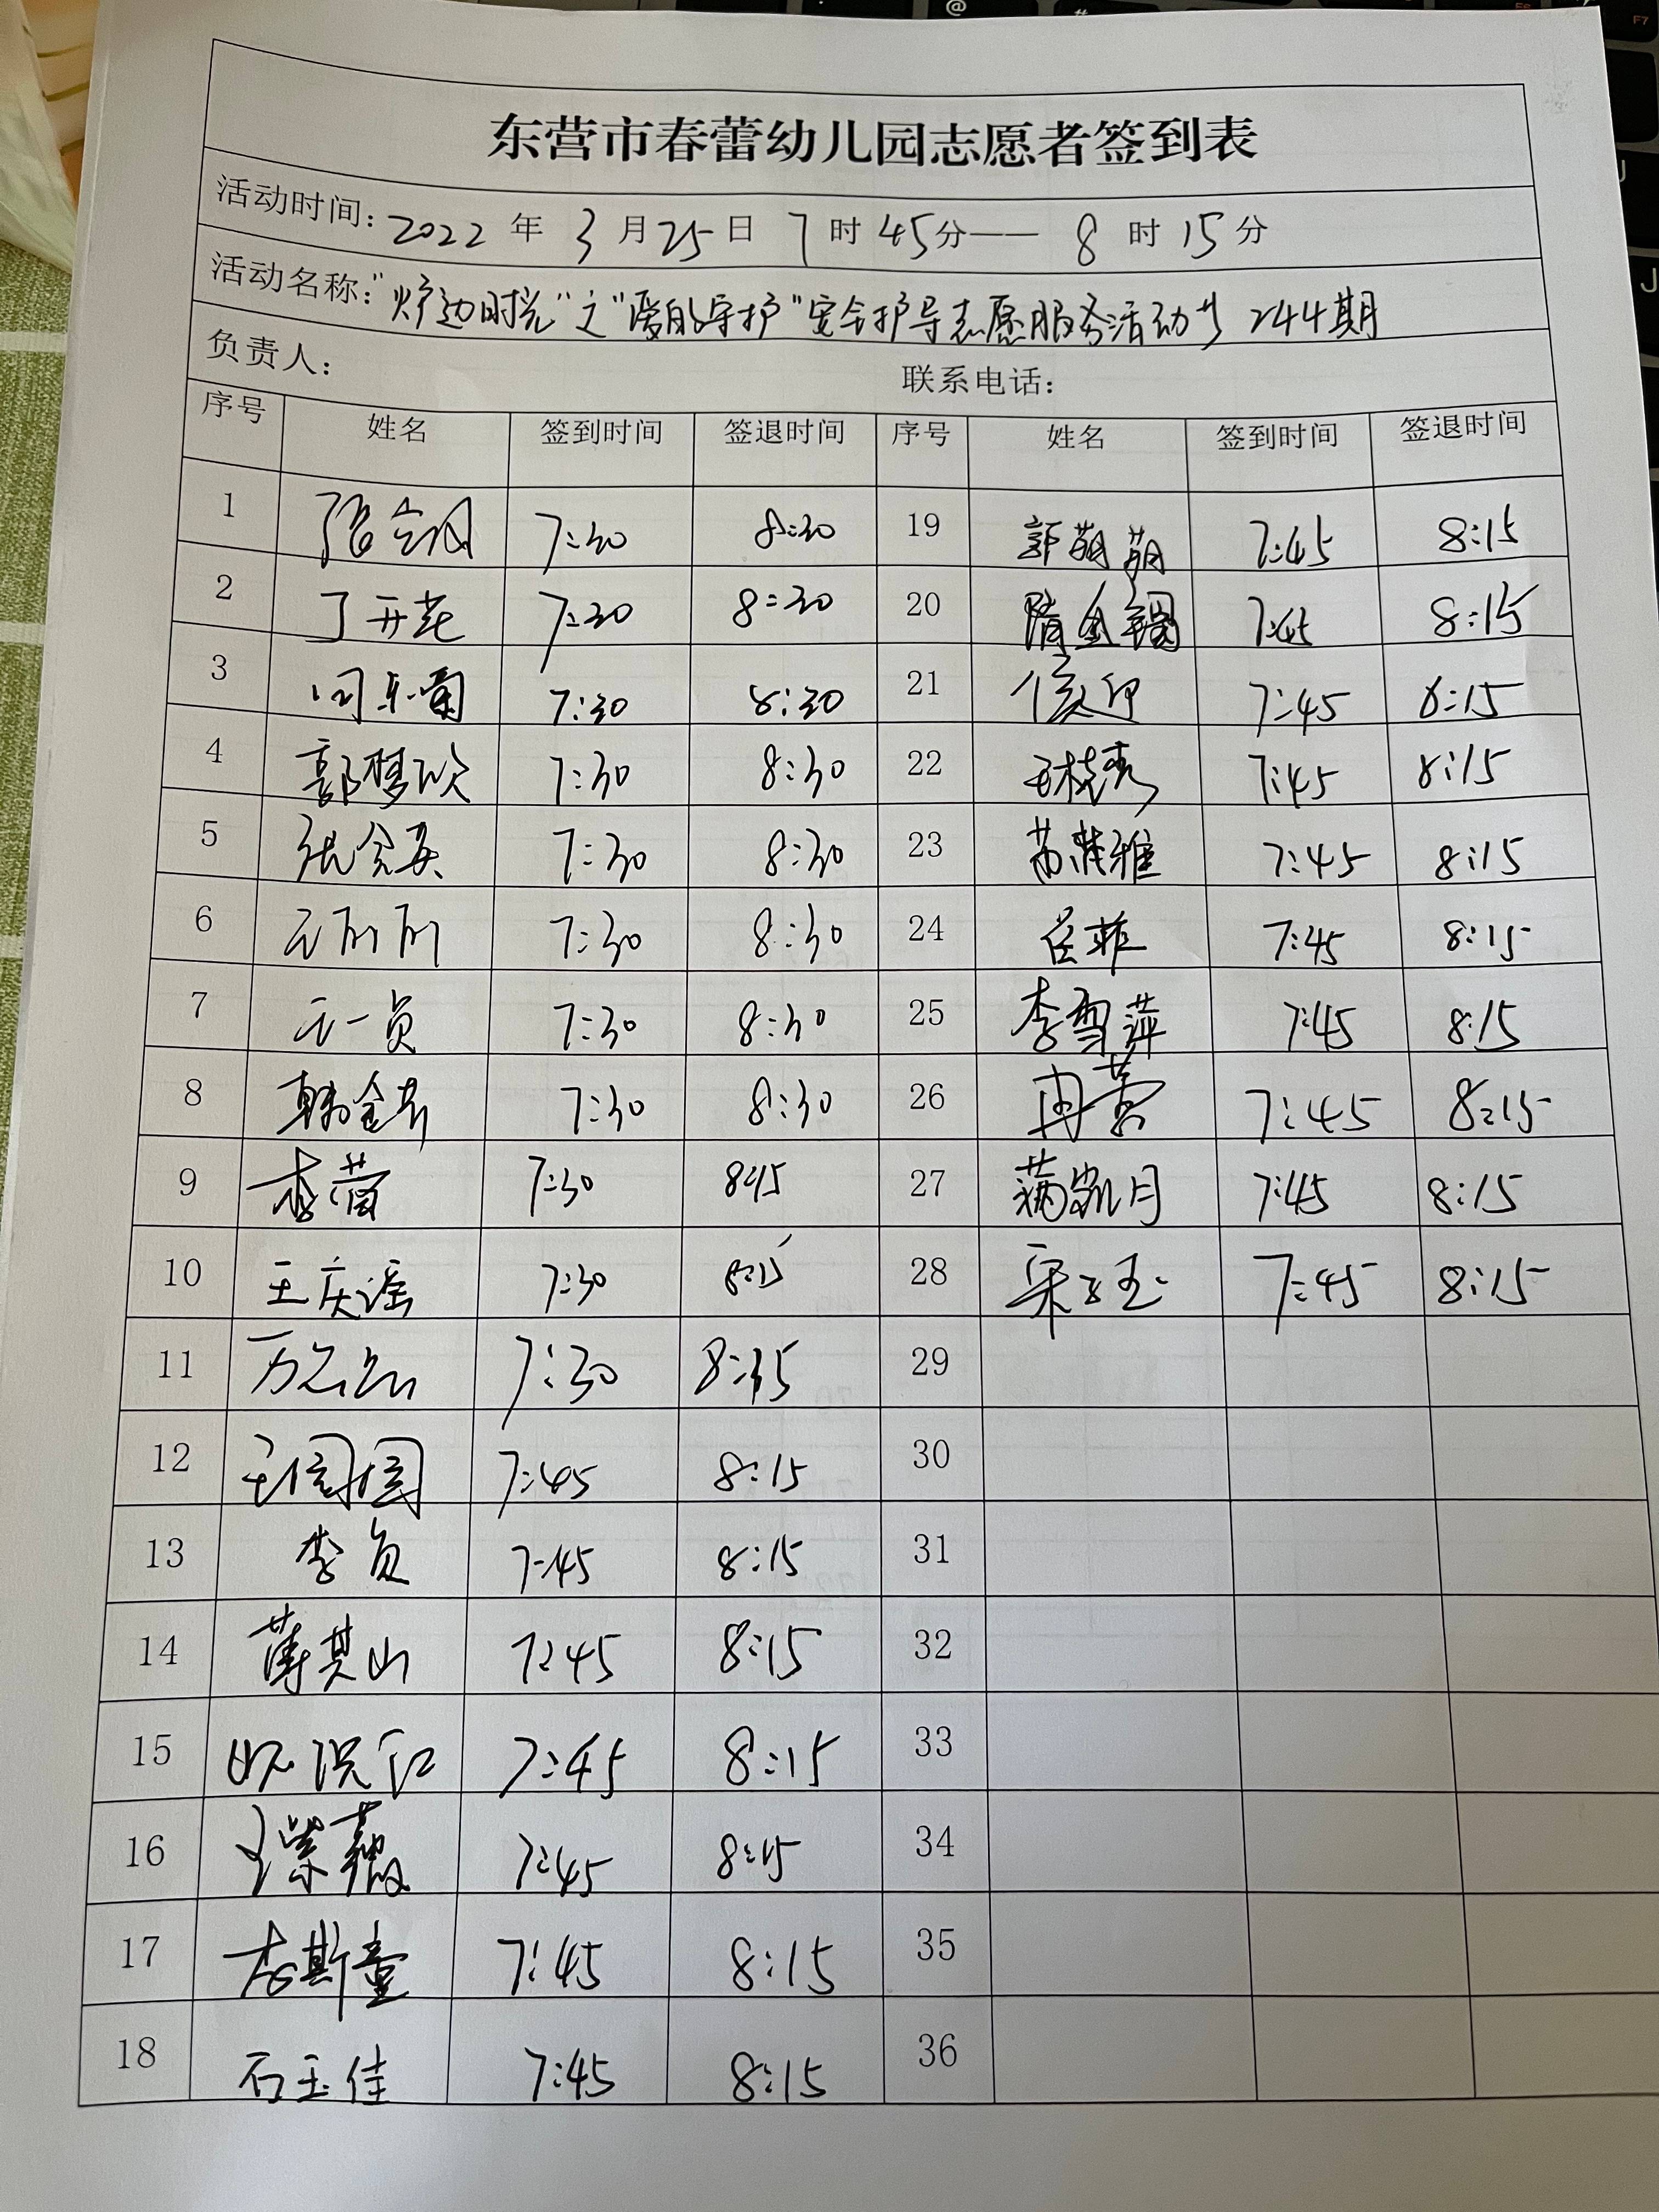 东营市春蕾幼儿园志愿者签到表
活动时间：2022 年 3 月 25 日 7 时 45 分—— 8 时 15 分
活动名称："炉边时光"之"爱的守护"安全护导志愿服务活动 244期
负责人： 联系电话：
序号 姓名 签到时间 签退时间 序号 姓名 签到时间 签退时间
1 7:30 8:30 19 郭萌萌 7:45 8:15
2 丁开花 7:30 8:30 20 隋金 7:45 8:15
3 7:30 8:30 21 7:45 8:15
4 郭梦欣 7:30 8:30 22 7:45 8:15
5 张会英 7:30 8:30 23 苏雅 7:45 8:15
6 7:30 8:30 24 菲 7:45 8:15
7 王一贞 7:30 8:30 25 李雪萍 7:45 8:15
8 韩金芳 7:30 8:30 26 冉蕾 7:45 8:15
9 7:30 8:15 27 蒲凯月 7:45 8:15
10 王庆谣 7:30 8:15 28 宋玉 7:45 8:15
11 7:30 8:15 29
12 王园园 7:45 8:15 30
13 李贞 7:45 8:15 31
14 薄其山 7:45 8:15 32
15 7:45 8:15 33
16 王紫薇 7:45 8:15 34
17 李斯童 7:45 8:15 35
18 石玉佳 7:45 8:15 36